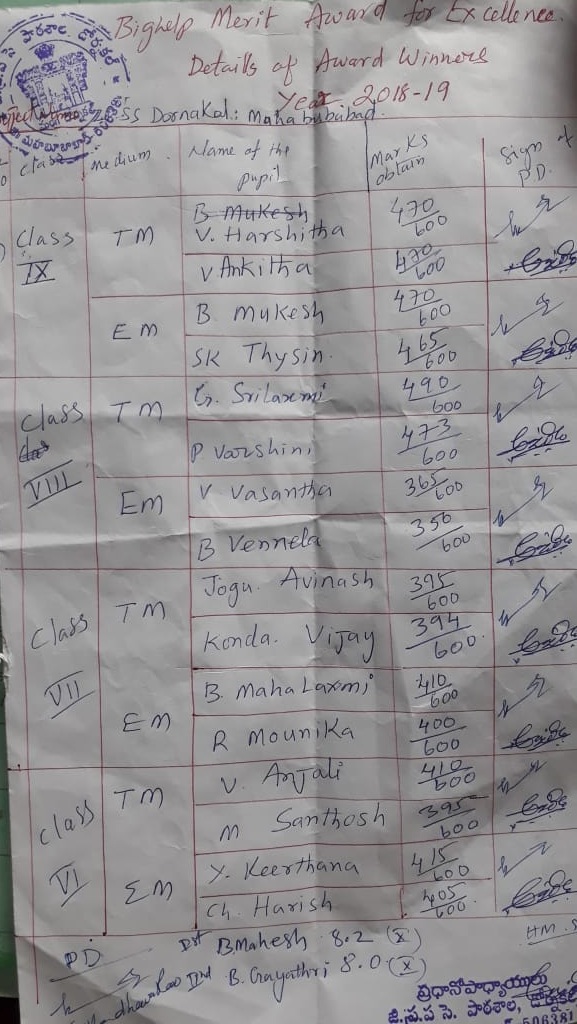 Bighelp Merit Award for Excellence.
Details of Award Winners
Year 2018-19
SS Dornakal: Mahabubabad.
class medium. Name of the pupil Marks obtain Sign of P.D.
Class IX TM B Mukesh
V. Harshitha 470/600
V Ankitha 470/600
EM B. Mukesh 470/600
SK Thysin. 465/600
Class VIII TM G. Srilaxmi 490/600
P Varshini 473/600
Em V Vasantha 365/600
B Vennela 350/600
Class VII TM Jogu. Avinash 395/600
Konda. Vijay 394/600.
EM B. Maha Laxmi 410/600
R Mounika 400/600
Class VI TM V. Anjali 410/600
M Santhosh 395/600
EM Y. Keerthana 415/600
Ch. Harish 405/600.
PD Ist B.Mahesh 8.2 (X) HM.S
IInd B. Gayathri 8.0 (X)
ప్రధానోపాధ్యాయులు
జి.ప.ప సె. పాఠశాల, డోర్నకల్
506381